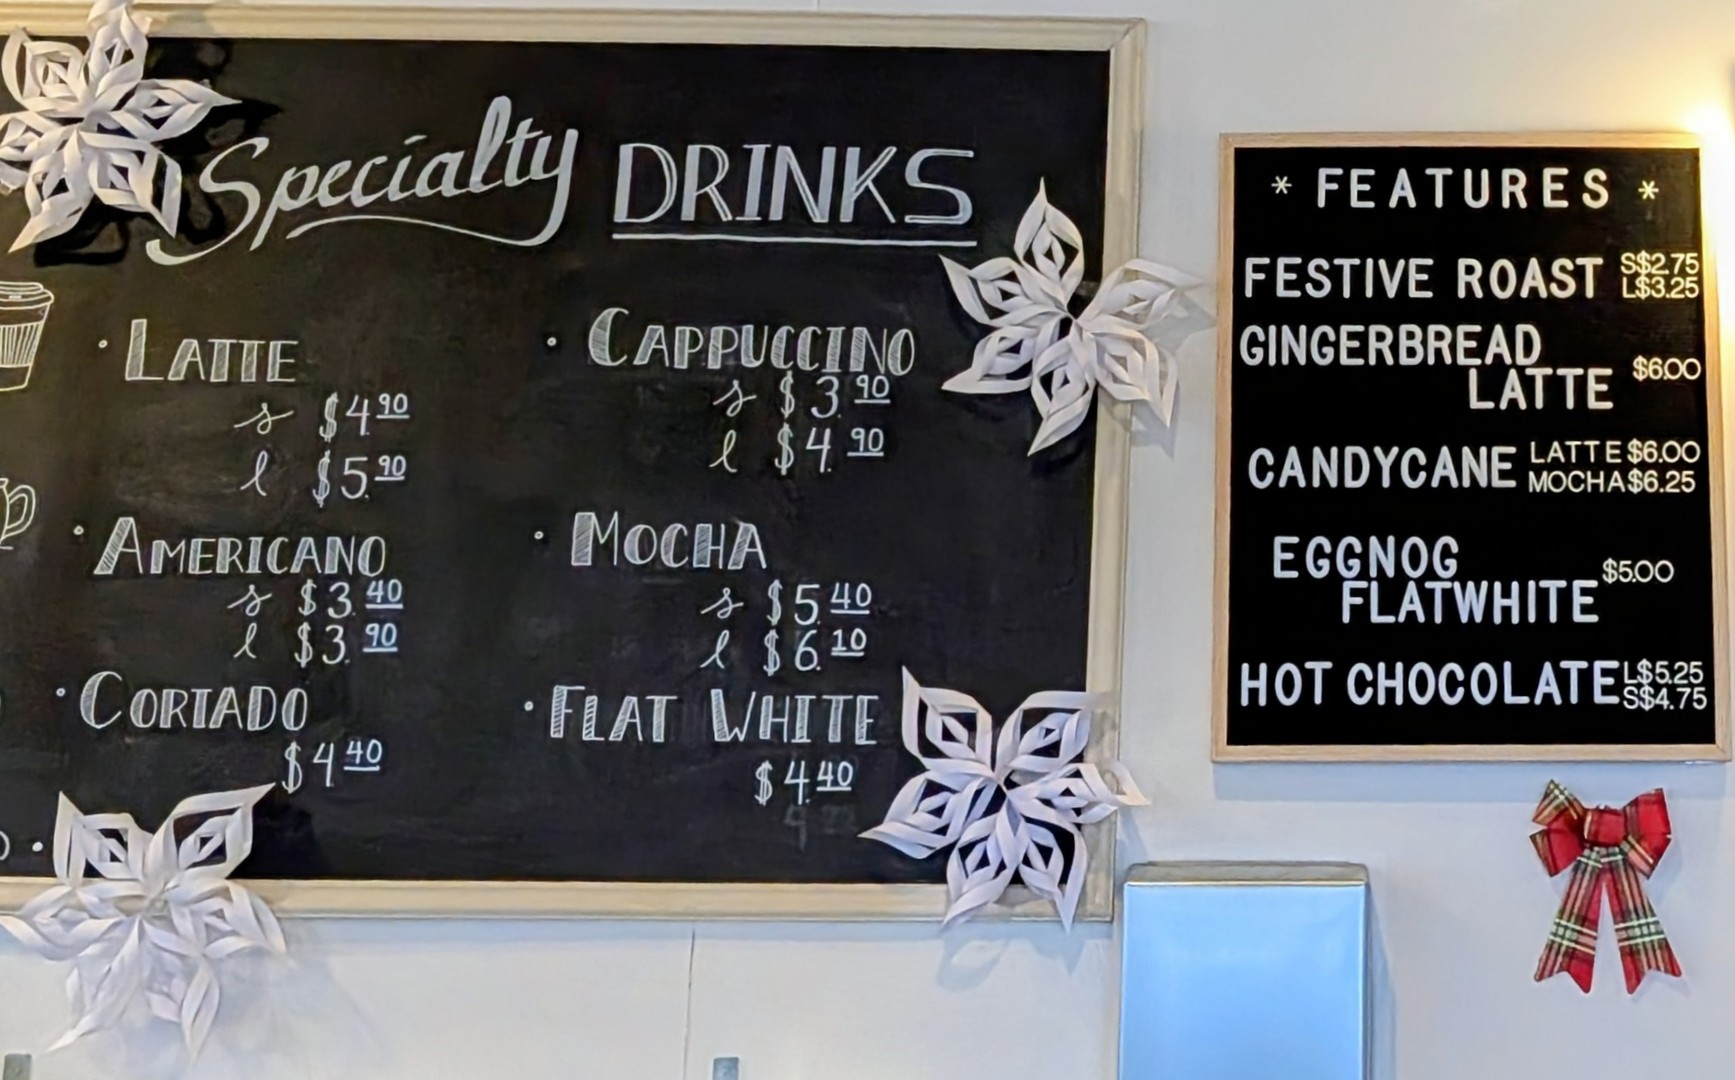 Specialty DRINKS
· LATTE
s $4.90
l $5.90
· AMERICANO
s $3.40
l $3.90
· CORTADO
$4.40
· CAPPUCCINO
s $3.90
l $4.90
· MOCHA
s $5.40
l $6.10
· FLAT WHITE
$4.40
* FEATURES *
FESTIVE ROAST S$2.75
L$3.25
GINGERBREAD
LATTE $6.00
CANDYCANE LATTE $6.00
MOCHA $6.25
EGGNOG
FLATWHITE $5.00
HOT CHOCOLATE L$5.25
S$4.75